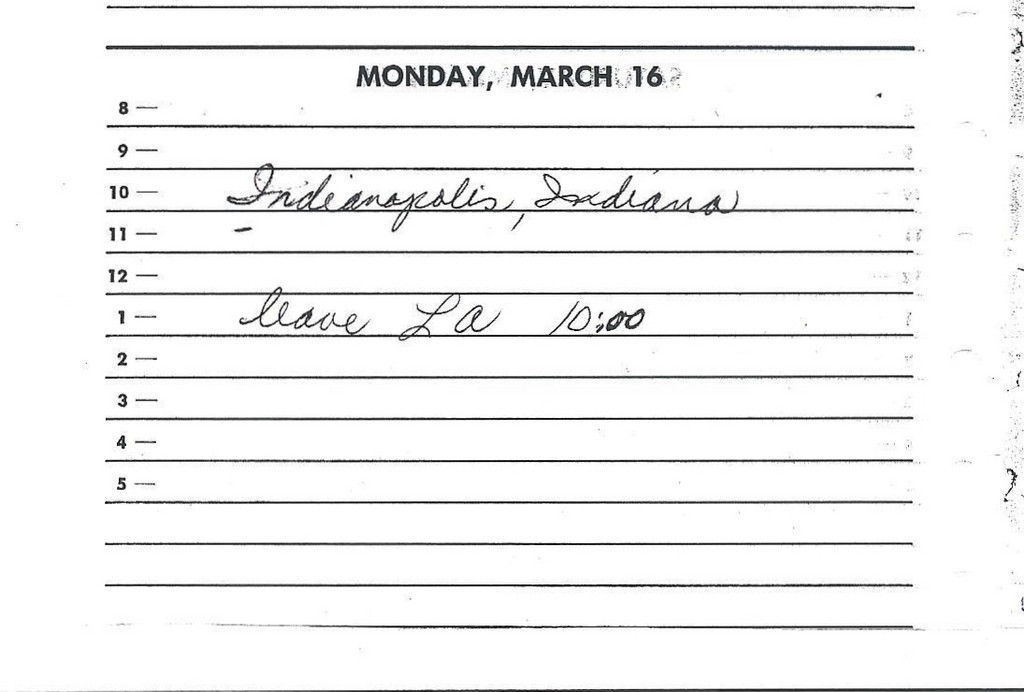 MONDAY, MARCH 16
8 —
9 —
10 — Indianapolis, Indiana
11 — -
12 —
1 — leave LA 10:00
2 —
3 —
4 —
5 —